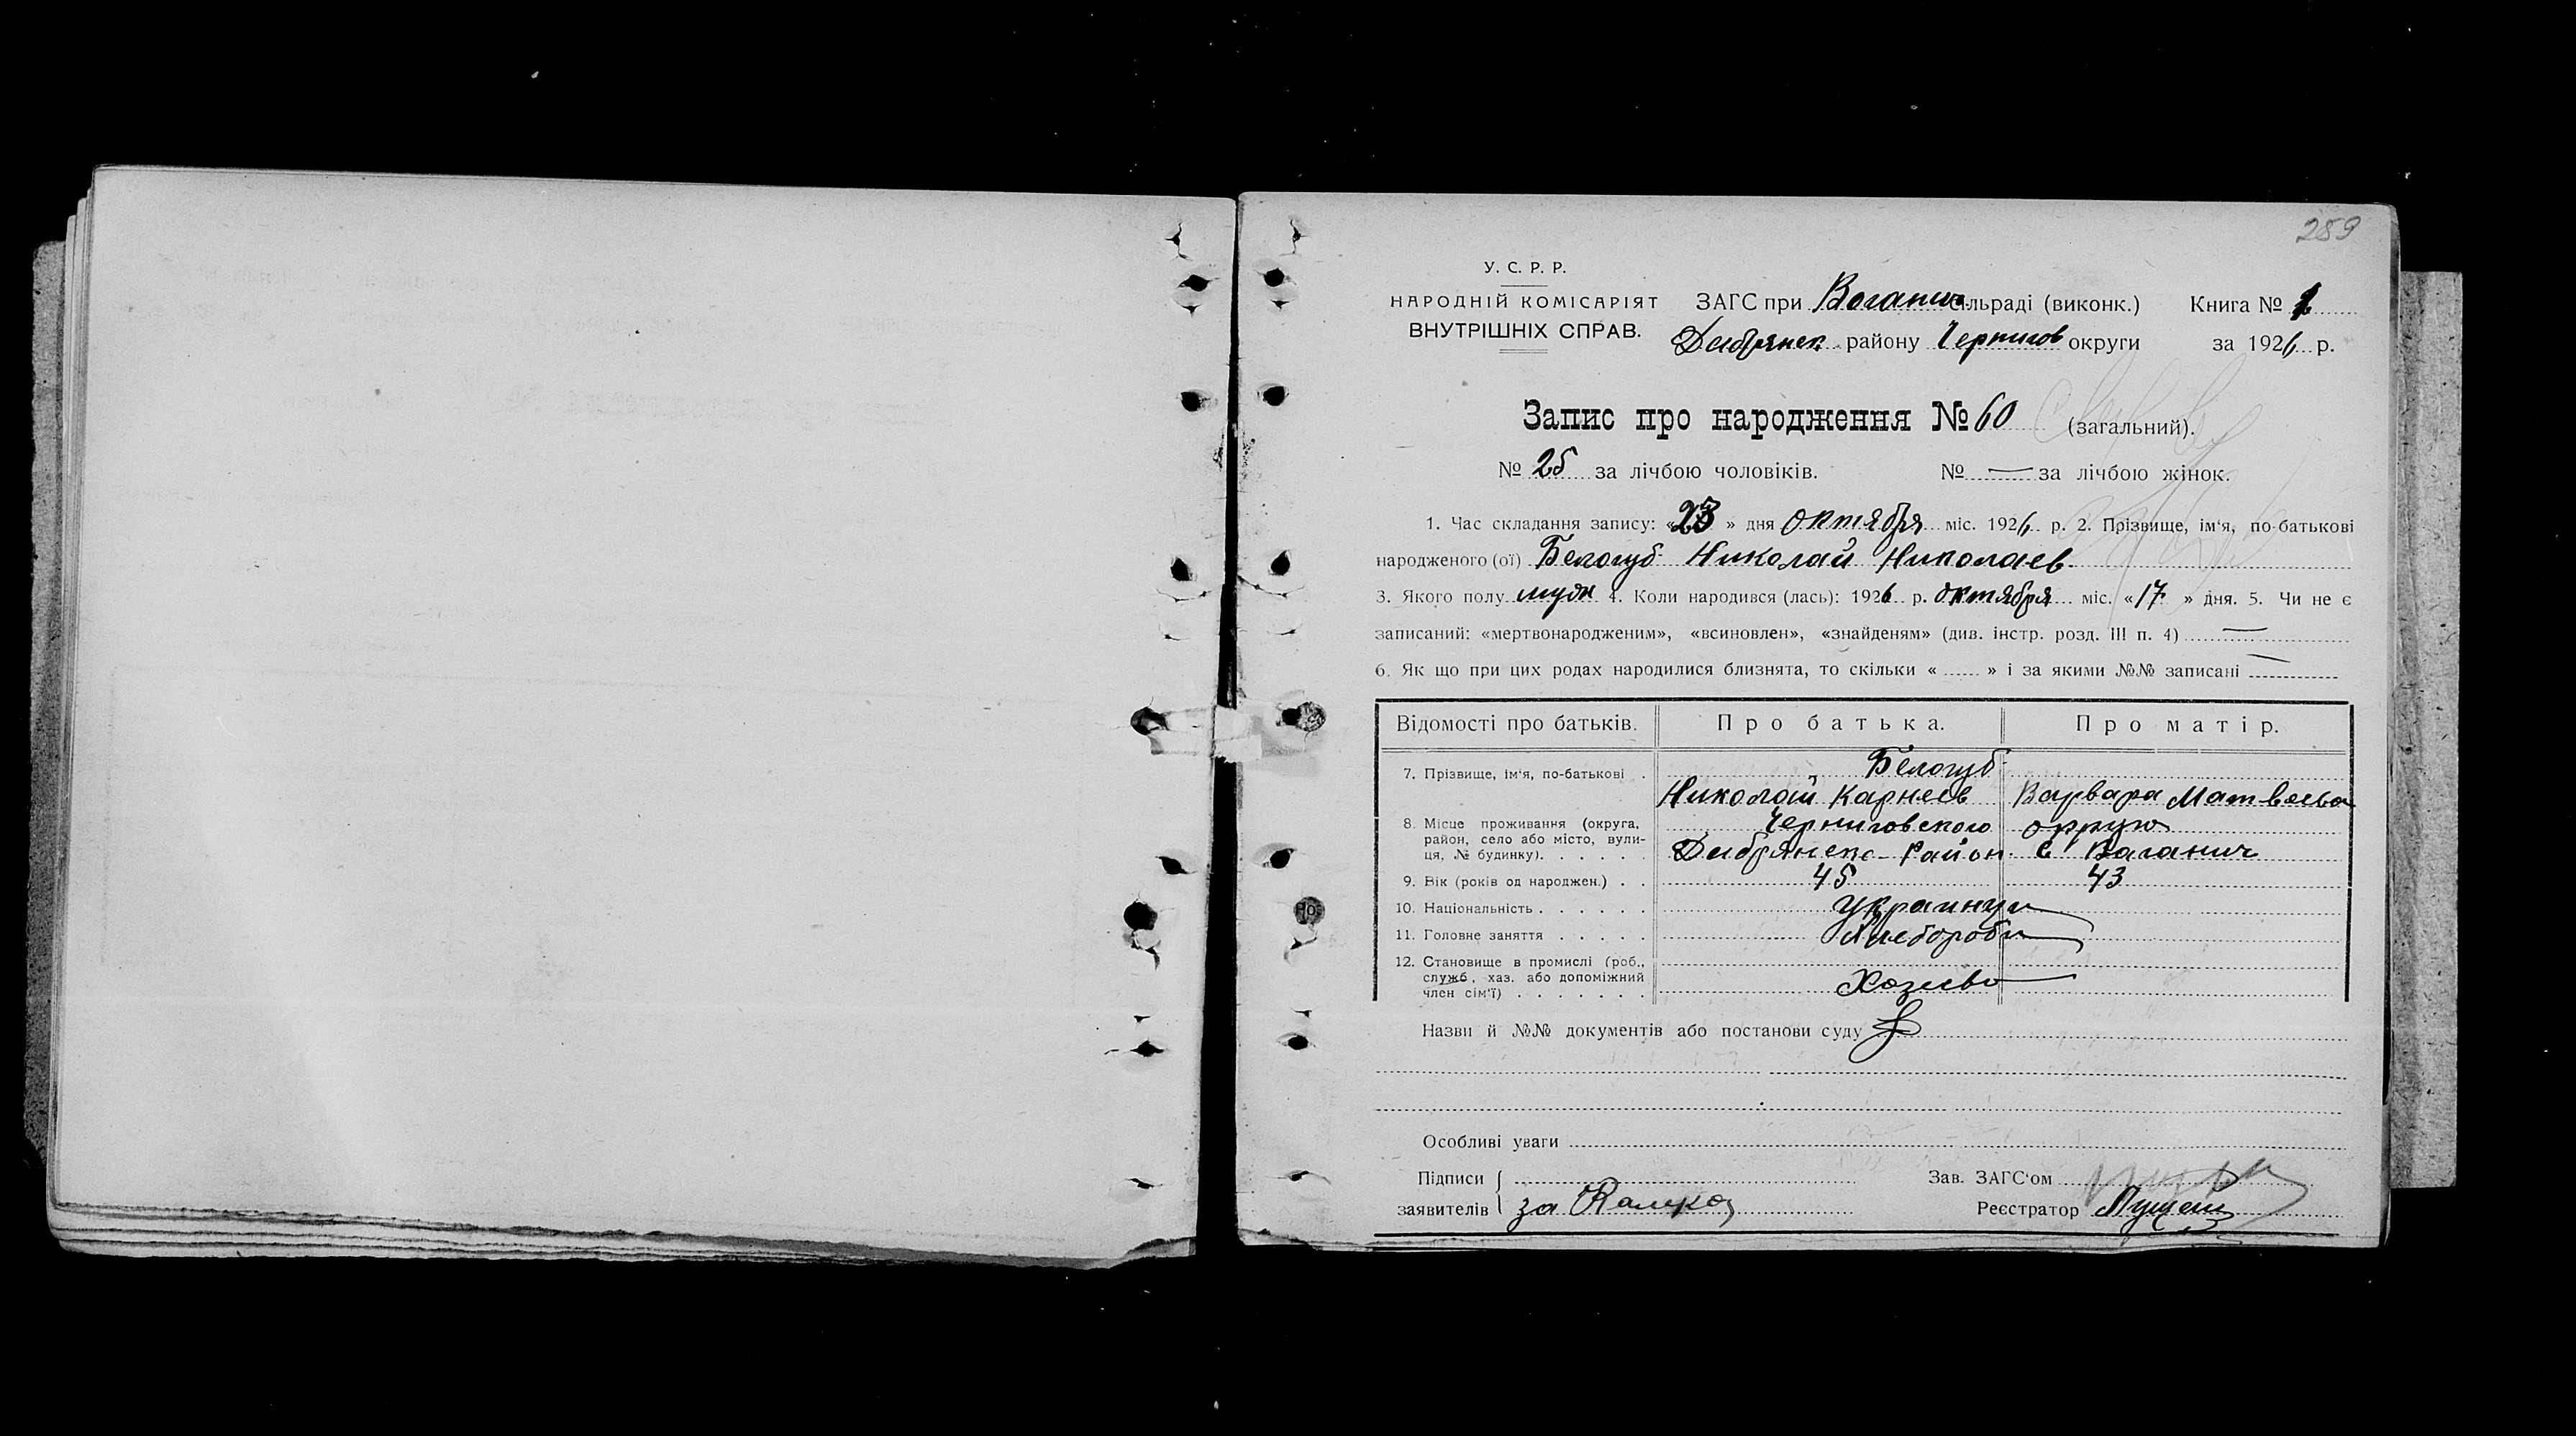 289
У. С. Р. Р.
НАРОДНІЙ КОМІСАРІЯТ
ВНУТРІШНІХ СПРАВ.
ЗАГС при Воганич сільраді (виконк.) Книга № 1
Добрянск району Чернигов округи за 1926 р.
Запис про народження № 60 (загальний).
№ 25 за лічбою чоловіків. № — за лічбою жінок.
1. Час складання запису: «23» дня октября міс. 1926 р. 2. Прізвище, ім'я, по-батькові
народженого (ої) Белогуб Николай Николаев
3. Якого полу муж 4. Коли народився (лась): 1926 р. октября міс. «17» дня. 5. Чи не є
записаний: «мертвонародженим», «всиновлен», «знайденям» (див. інстр. розд. III п. 4) —
6. Як що при цих родах народилися близнята, то скільки « ...... » і за якими №№ записані —
Відомості про батьків. Про батька. Про матір.
7. Прізвище, ім'я, по-батькові . Белогуб
Николай Карнеев Варвара Матвеева
8. Місце проживання (округа, район, село або місто, вулиця, № будинку). Черниговского округа
Добрянск Район с Ваганич
9. Вік (років од народжен.) . . 45 43
10. Національність . . . . . . Украинци
11. Головне заняття . . . . . Хлебороби
12. Становище в промислі (роб., служб., хаз. або допоміжний член сім'ї) . . . . . . . Хозяева
Назви й №№ документів або постанови суду
Особливі уваги
Підписи заявителів за
Зав. ЗАГС'ом
Реєстратор